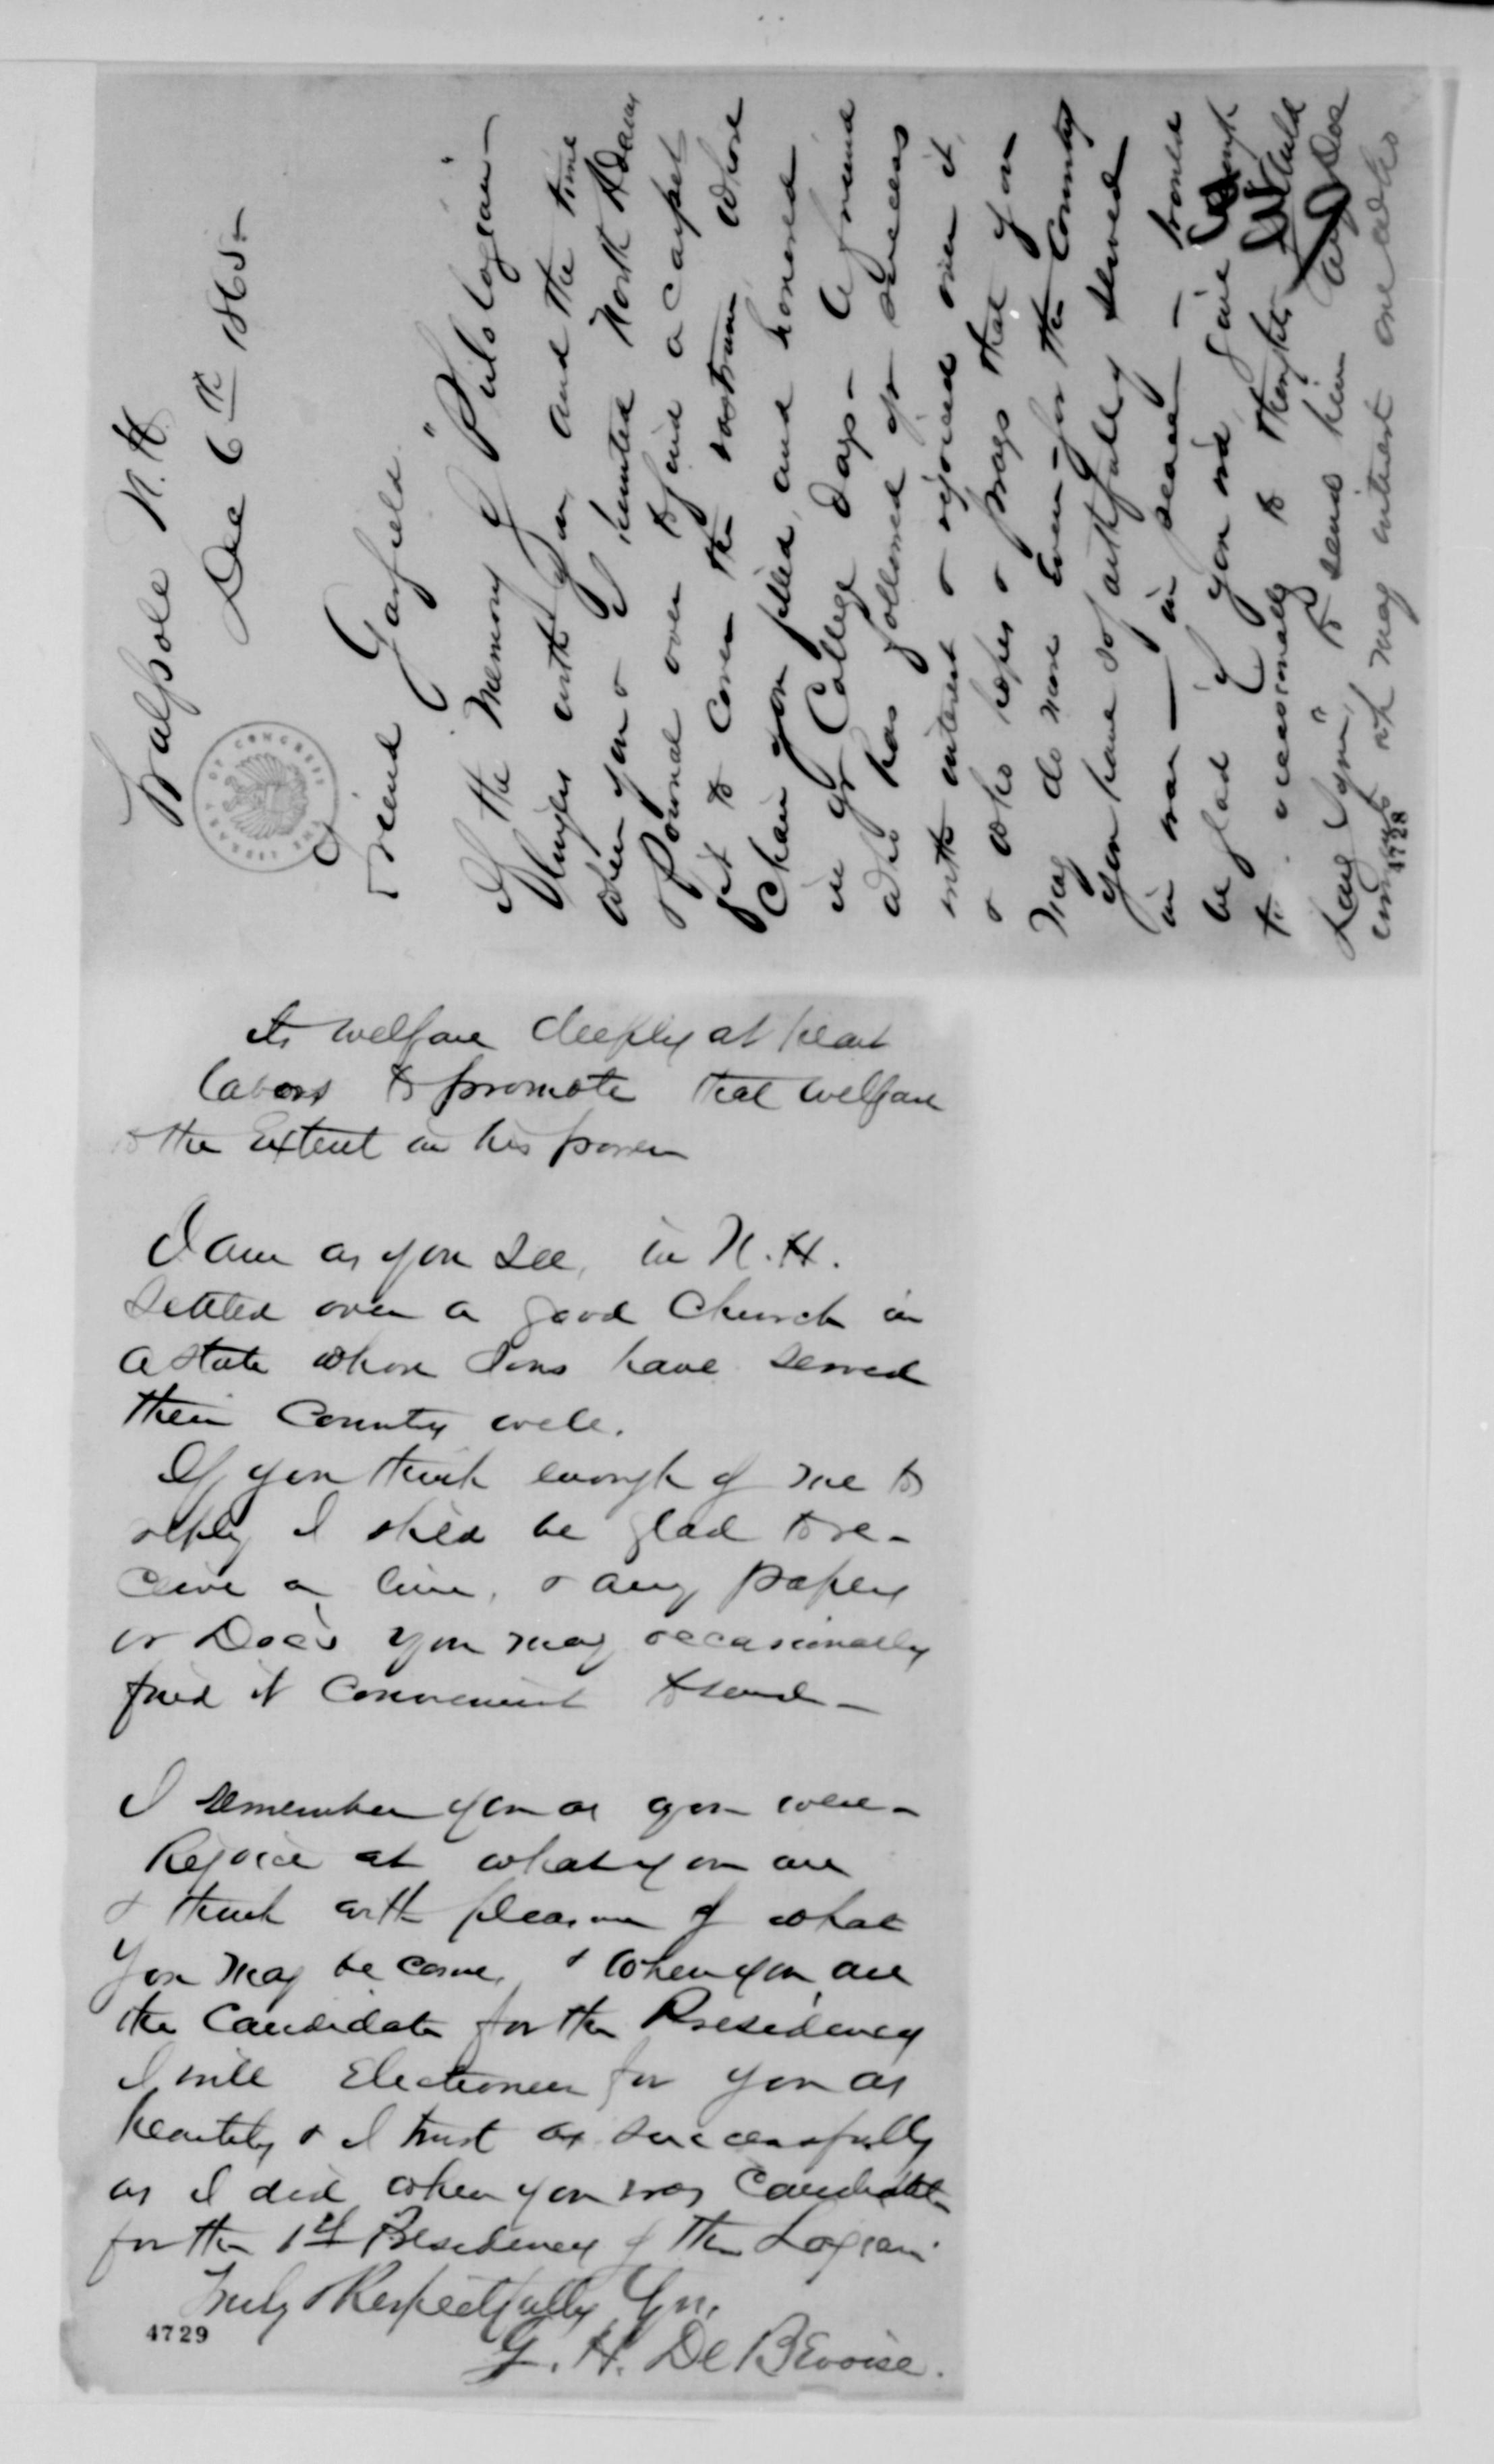 Walpole N.H.
Dec 6th 1865-
THE LIBRARY OF CONGRESS
Friend Garfield.
If the memory of "Philologian"
lingers with you and the time
when you & I hunted North Adams
& Pownal over to find a carpet
fit to cover the rostrum whose
Chair you filled, and honored
in yr College days - A friend
who has followed yr success
with interest & rejoiced over it
& who hopes & prays that you
may do more even for the Country
you have so faithfully served
in war — in peace — would
be glad if you wd give enough
to occasionally to thought
Lang Syne" to send him any Doc
wh may interest one who
4728
its welfare deeply at heart
labors to promote that welfare
to the extent in his power
I am as you see, in N.H.
settled over a good Church in
a state whose sons have served
their Country well.
If you think enough of me to
reply I shld be glad to re-
ceive a line, & any papers
or Doc's you may occasionally
find it convenient to send -
I remember you as you were -
Rejoice at what you are
& think with pleasure of what
you may become, & when you are
the Candidate for the Presidency
I will Electioneer for you as
heartily & I trust as successfully
as I did when you was Candidate
for the 1st Presidency of the Logian
Truly & Respectfully Yrs,
G. H. De Bevoise.
4729